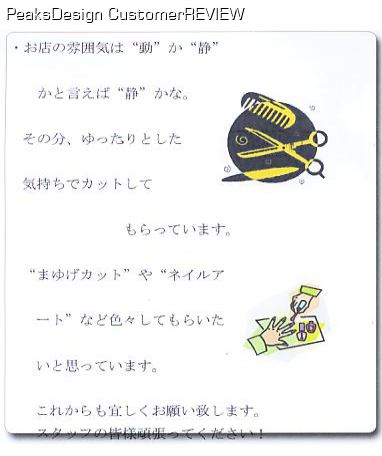 PeaksDesign CustomerREVIEW
・お店の雰囲気は“動”か“静”
かと言えば“静”かな。
その分、ゆったりとした
気持ちでカットして
もらっています。
“まゆげカット”や“ネイルア
ート”など色々してもらいた
いと思っています。
これからも宜しくお願い致します。
スタッフの皆様頑張ってください！